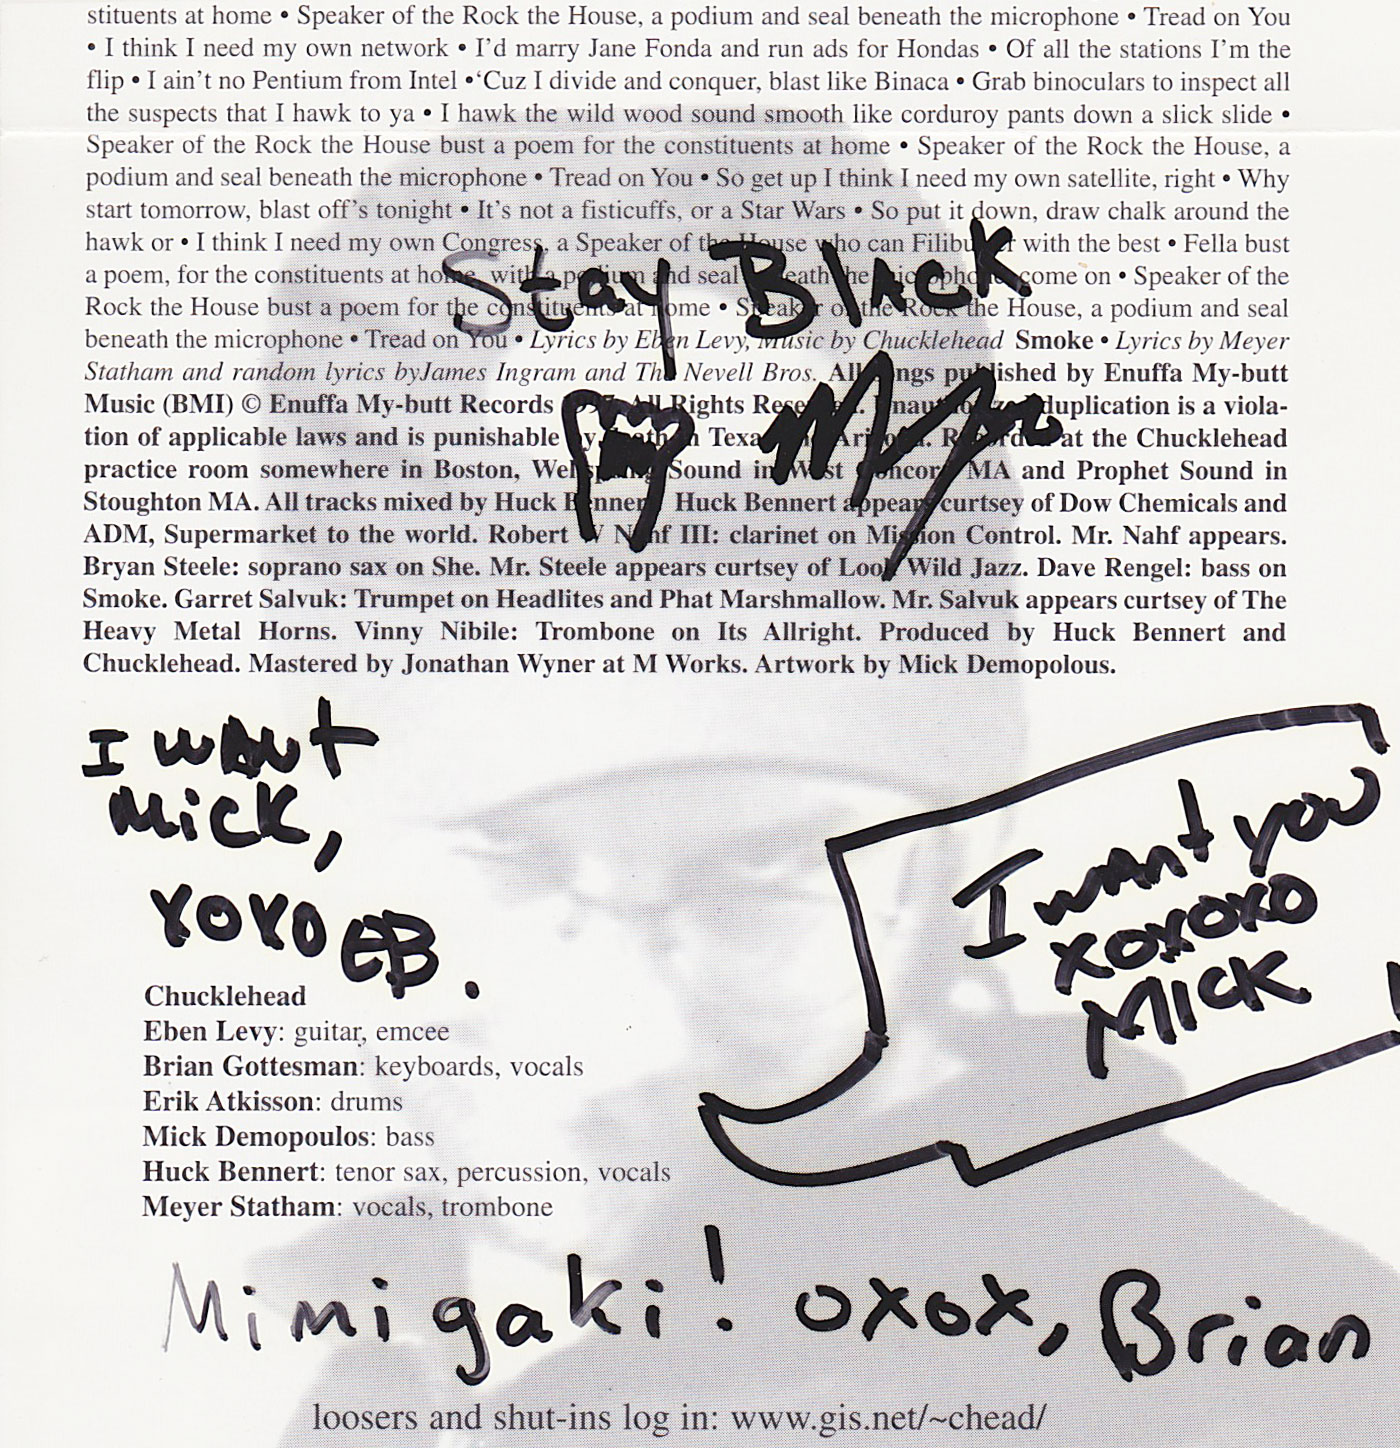 stituents at home • Speaker of the Rock the House, a podium and seal beneath the microphone • Tread on You
• I think I need my own network • I'd marry Jane Fonda and run ads for Hondas • Of all the stations I'm the
flip • I ain't no Pentium from Intel •'Cuz I divide and conquer, blast like Binaca • Grab binoculars to inspect all
the suspects that I hawk to ya • I hawk the wild wood sound smooth like corduroy pants down a slick slide •
Speaker of the Rock the House bust a poem for the constituents at home • Speaker of the Rock the House, a
podium and seal beneath the microphone • Tread on You • So get up I think I need my own satellite, right • Why
start tomorrow, blast off's tonight • It's not a fisticuffs, or a Star Wars • So put it down, draw chalk around the
hawk or • I think I need my own Congress, a Speaker of the House who can Filibuster with the best • Fella bust
a poem, for the constituents at home, with a podium and seal beneath the microphone come on • Speaker of the
Rock the House bust a poem for the constituents at home • Speaker of the Rock the House, a podium and seal
beneath the microphone • Tread on You • Lyrics by Eben Levy, Music by Chucklehead Smoke • Lyrics by Meyer
Statham and random lyrics byJames Ingram and The Nevell Bros. All songs published by Enuffa My-butt
Music (BMI) © Enuffa My-butt Records All Rights Reserved. Unauthorized duplication is a viola-
tion of applicable laws and is punishable by death in Texas and Arizona. Recorded at the Chucklehead
practice room somewhere in Boston, Wellspring Sound in West Concord MA and Prophet Sound in
Stoughton MA. All tracks mixed by Huck Bennert. Huck Bennert appears curtsey of Dow Chemicals and
ADM, Supermarket to the world. Robert W Nahf III: clarinet on Mission Control. Mr. Nahf appears.
Bryan Steele: soprano sax on She. Mr. Steele appears curtsey of Look Wild Jazz. Dave Rengel: bass on
Smoke. Garret Salvuk: Trumpet on Headlites and Phat Marshmallow. Mr. Salvuk appears curtsey of The
Heavy Metal Horns. Vinny Nibile: Trombone on Its Allright. Produced by Huck Bennert and
Chucklehead. Mastered by Jonathan Wyner at M Works. Artwork by Mick Demopolous.
Stay Black
I want
Mick,
XOXO EB.
I want you
xoxoxo
Mick
Chucklehead
Eben Levy: guitar, emcee
Brian Gottesman: keyboards, vocals
Erik Atkisson: drums
Mick Demopoulos: bass
Huck Bennert: tenor sax, percussion, vocals
Meyer Statham: vocals, trombone
Mimigaki! oxox, Brian
loosers and shut-ins log in: www.gis.net/~chead/